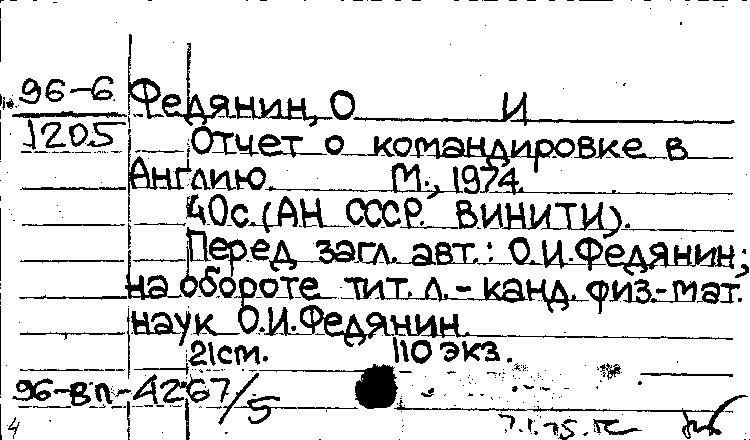 96-6 Федянин, О И
1205 Отчет о командировке в
Англию. М., 1974.
40с. (АН СССР. ВИНИТИ).
Перед загл. авт.: О.И.Федянин;
на обороте тит. л. - канд. физ.-мат.
наук О.И.Федянин.
21см. 110 экз.
96-вп-4267/5
4